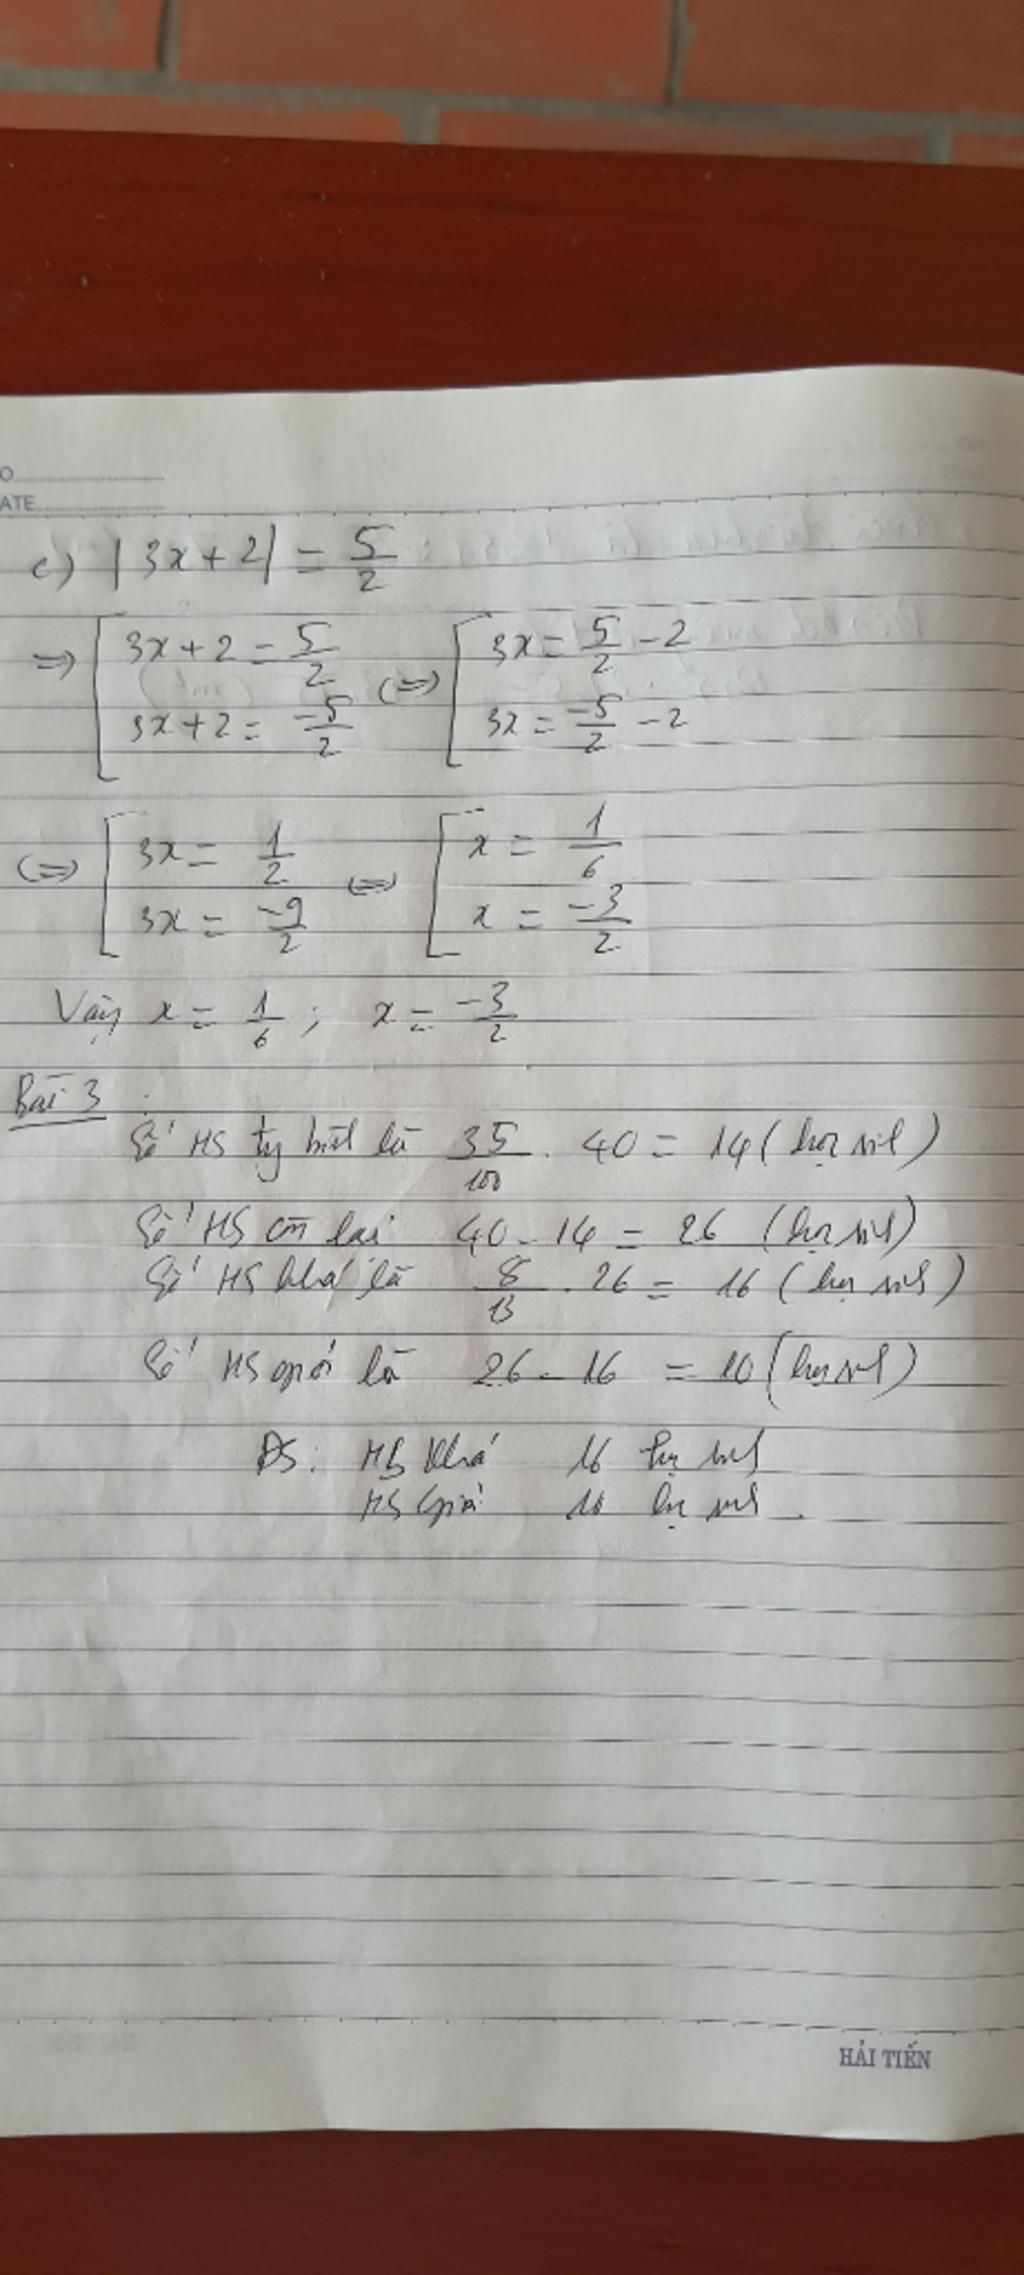 O
ATE
c) |3x+2| = 5/2
=> [ 3x+2 = 5/2 (=>) [ 3x = 5/2 - 2
3x+2 = -5/2 3x = -5/2 - 2
(=>) [ 3x = 1/2 (=>) [ x = 1/6
3x = -9/2 x = -3/2
Vậy x = 1/6 ; x = -3/2
Bài 3 :
Số HS là 35/100 . 40 = 14 (học sinh)
Số HS còn lại 40 - 14 = 26 (học sinh)
Số HS khá là 8/13 . 26 = 16 (học sinh)
Số HS giỏi là 26 - 16 = 10 (học sinh)
ĐS: HS Khá 16 học sinh
HS Giỏi 10 học sinh.
HẢI TIẾN